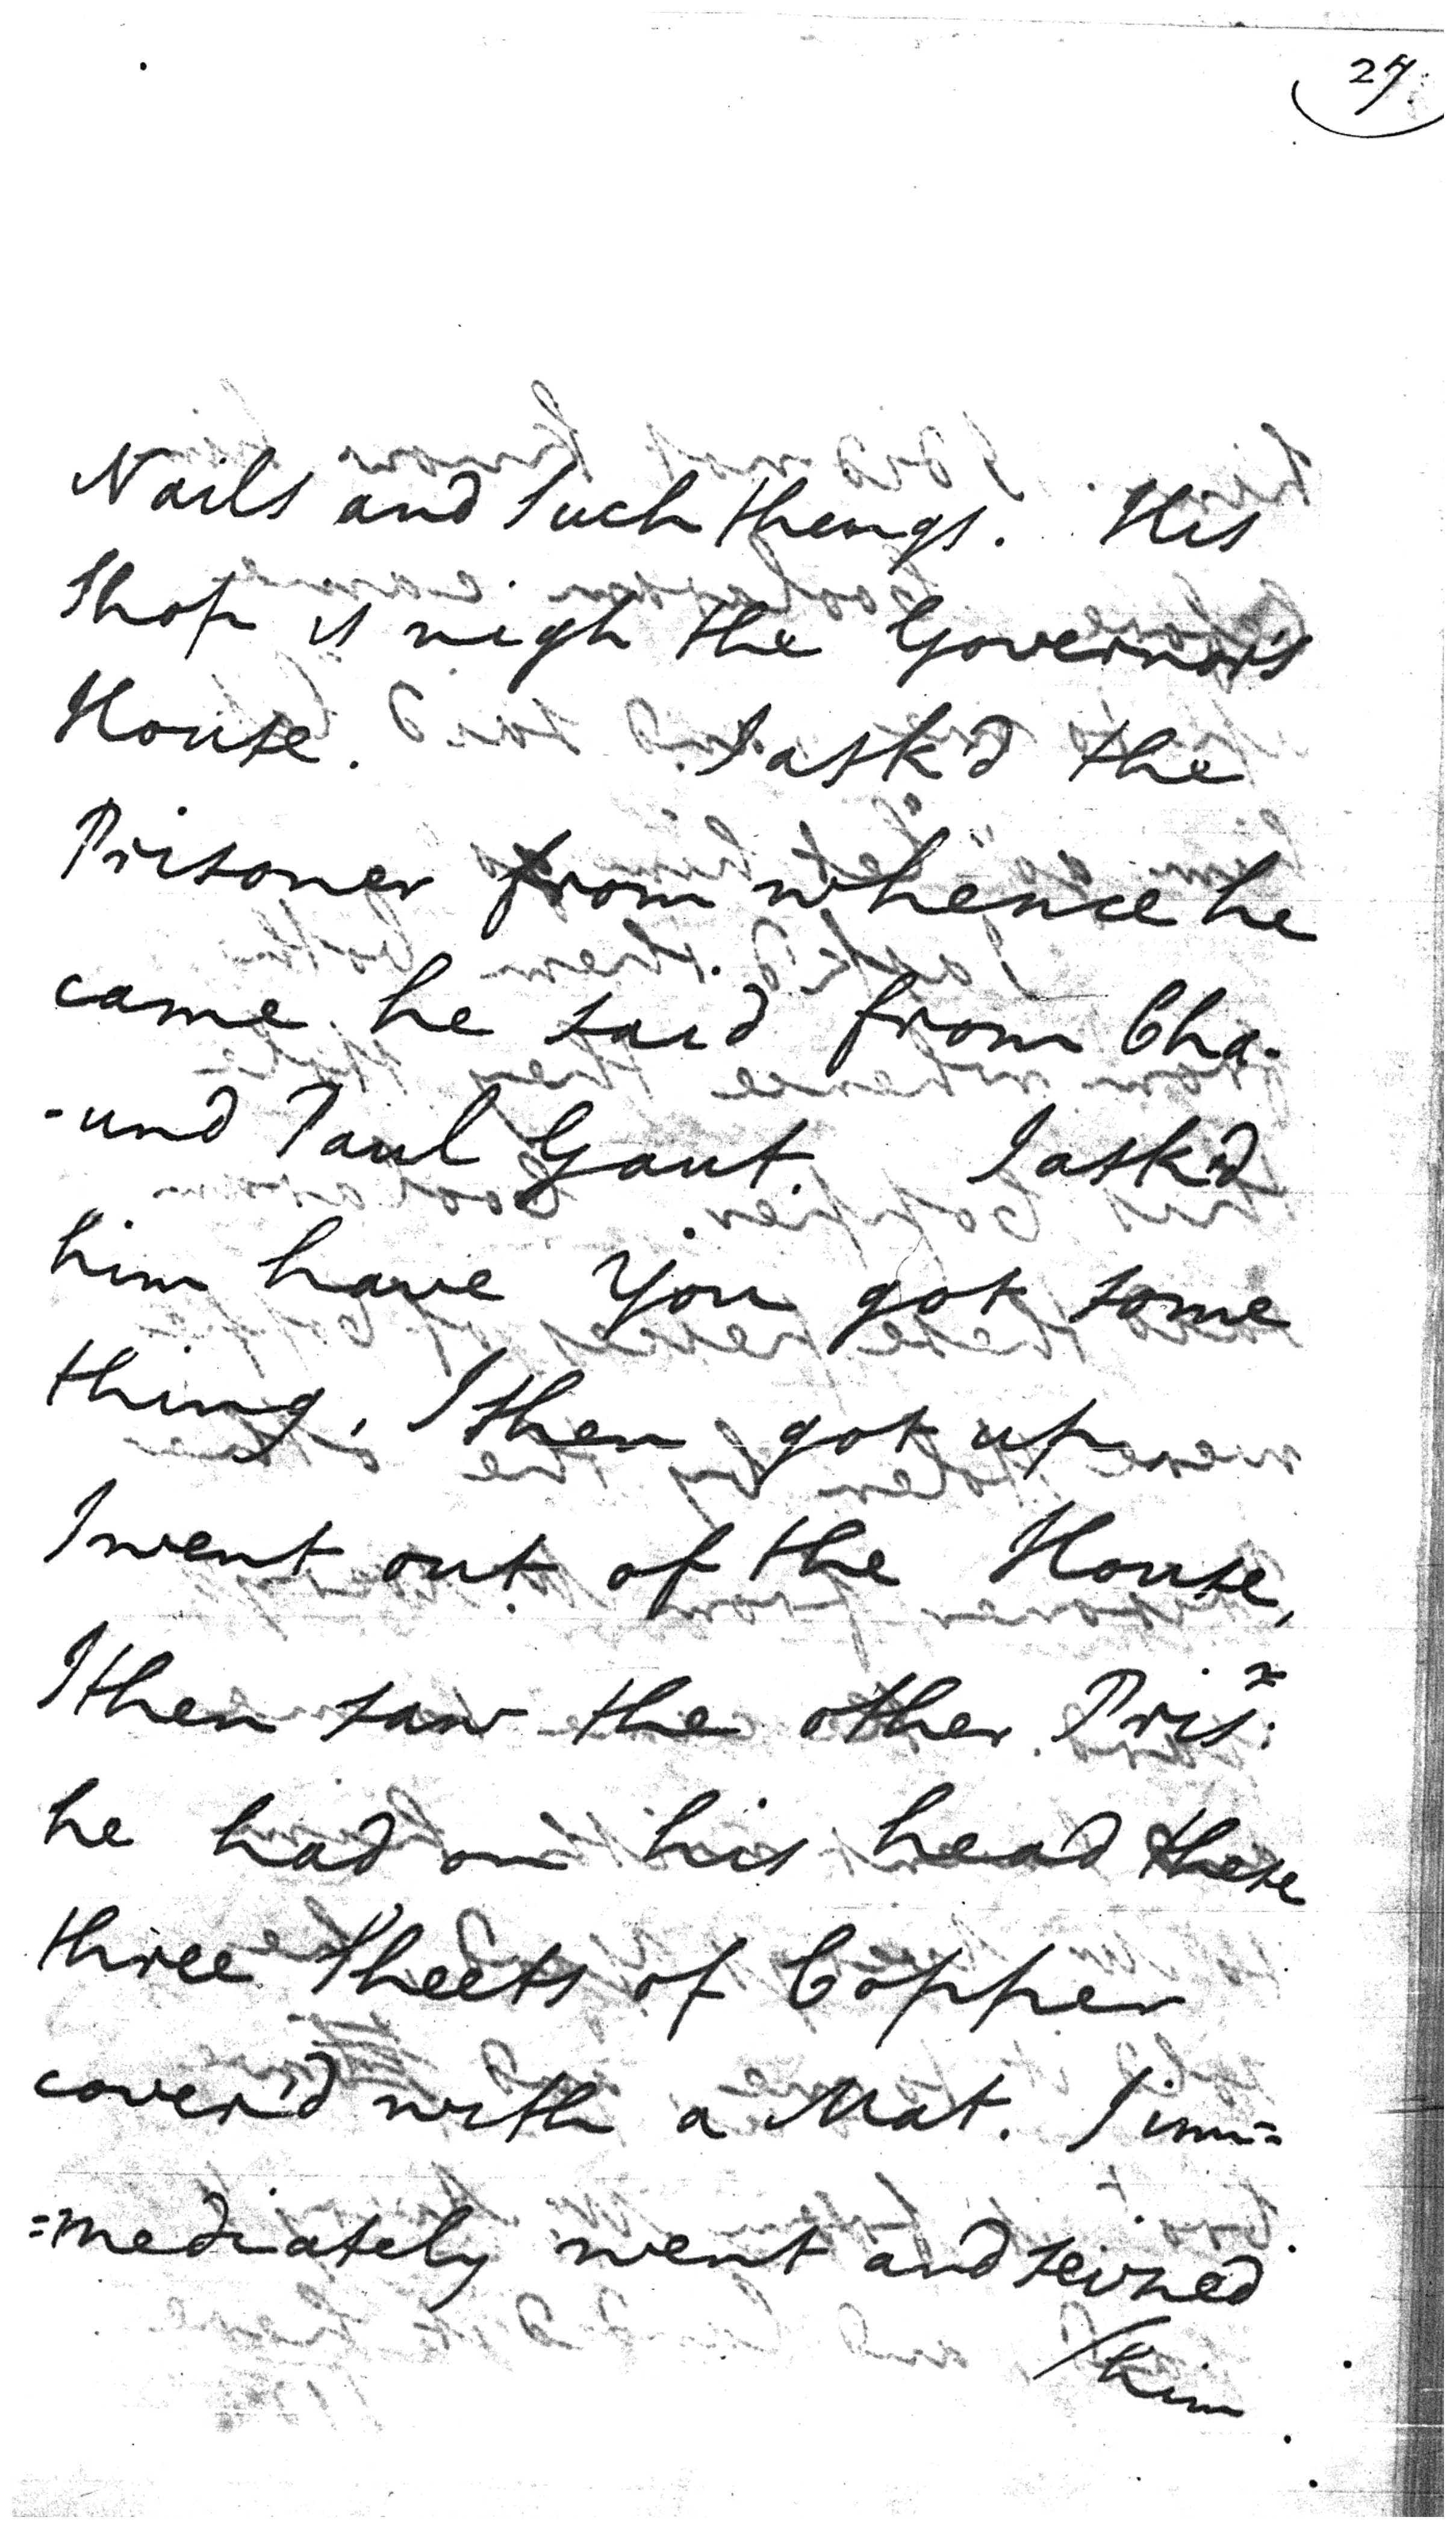 27.
Nails and Such things. His
Shop is nigh the Governor's
House. I ask'd the
Prisoner from whence he
came he said from Cha-
-und Paul Gaut. I ask'd
him have you got some
thing, I then got up
I went out of the House,
I then saw the other Prisr.
he had on his head these
three Sheets of Copper
cover'd with a Mat. I imm=
=mediately went and seized
/him